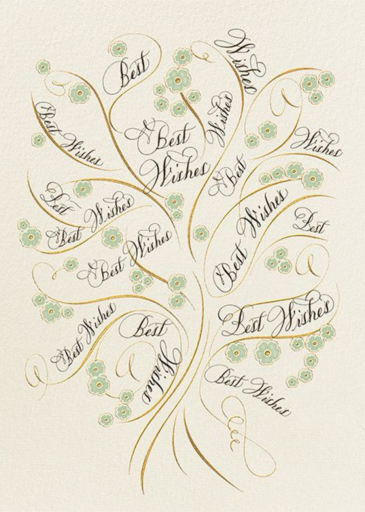 Best
Wishes
Best Wishes
Best
Wishes
Wishes
Wishes
Best
Best
Best Wishes
Best Wishes
Best
Best Wishes
Best Wishes
Best Wishes
Best
Wishes
Best Wishes
Best Wishes